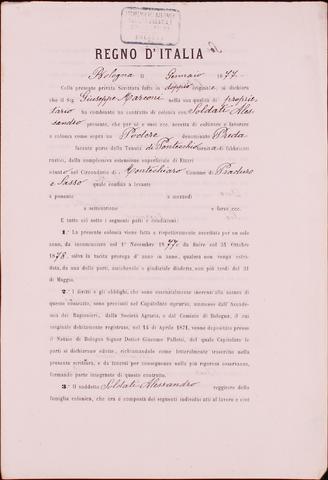 REGNO D'ITALIA
Bologna li Gennaio 1877.
Colla presente privata Scrittura fatta in doppio originale, si dichiara
che il Sig. Giuseppe Marconi nella sua qualità di proprie
tario ha condotto un contratto di colonia con Soldati Ales
sandro presente, che per sè e suoi ecc. accetta di coltivare e lavorare
a colonia come sopra un Podere denominato Preda
facente parte della Tenuta di Pontecchio di fabbricati
rustici, della complessiva estensione superficiale di Ettari
situato nel Circondario di Montechiaro Comune di Praduro
e Sasso quale confina a levante
a ponente a mezzodì
a settentrione e forse ecc.
E tutto ciò sotto i seguenti patti e condizioni:
1.° La presente colonia viene fatta e rispettivamente accettata per un solo
anno, da incominciare col 1° Novembre 1877 da finire col 31 Ottobre
1878, salva la tacita proroga d'anno in anno, qualora non venga estra-
data, da una delle parti, anichevole o giudiziale disdetta, non più tardi del 31
di Maggio.
2.° I diritti e gli obblighi, che sono essenzialmente inerenti alla natura di
questo contratto, sono precisati nel Capitolato agrario, ammesso dall'Accade-
mia dei Ragionieri, dalla Società Agraria, e dal Comizio di Bologna, il cui
originale debitamente registrato, nel 14 Aprile 1871, venne depositato presso
il Notaio di Bologna Signor Dottor Giacomo Pallotti, del quale Capitolato le
parti si dichiarano edotte, richiamandolo come letteralmente trascritto nella
presente scrittura, e da tenersi per conseguenza nella più rigorosa osservanza,
formando parte integrante di questo contratto.
3.° Il suddetto Soldati Alessandro reggitore della
famiglia colonica, che ora è composta dei seguenti individui atti al lavoro e cioè